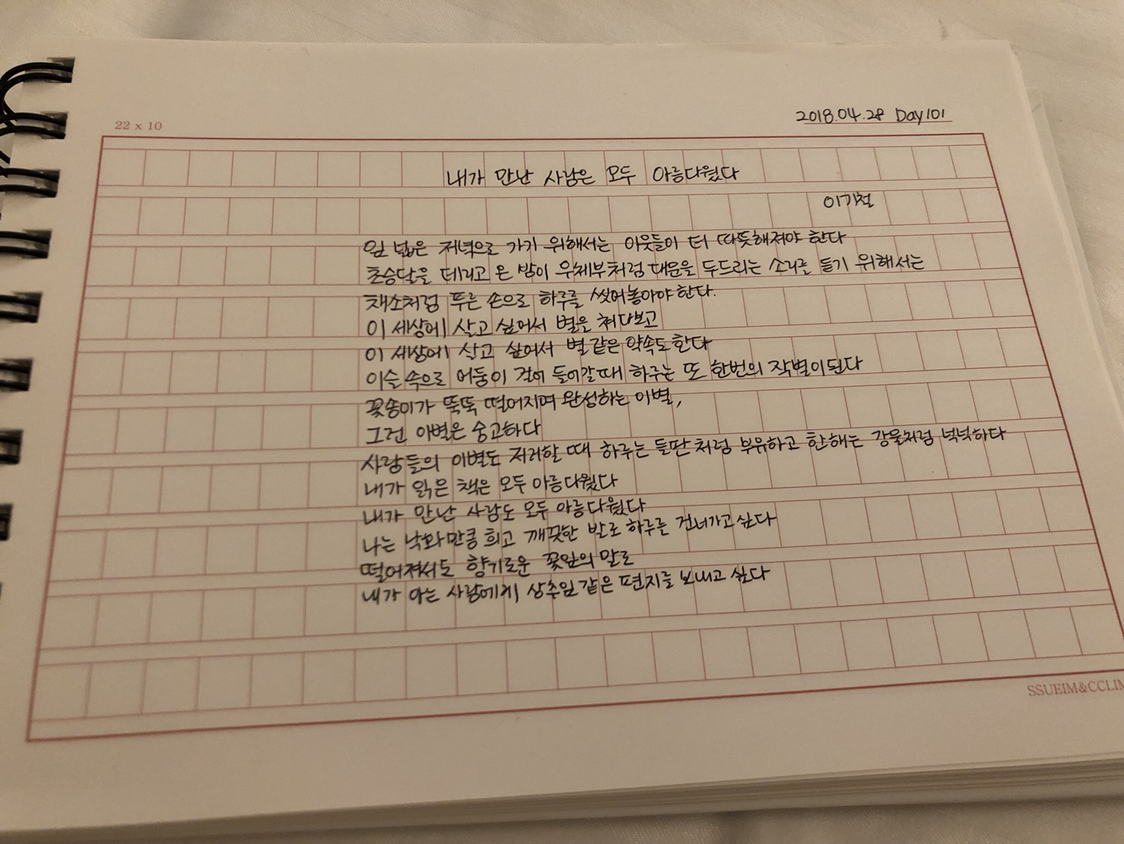 2018.04.28 Day101
22 x 10
내가 만난 사람은 모두 아름다웠다
이기철
잎 넓은 저녁으로 가기 위해서는 이웃들이 더 따뜻해져야 한다
초승달을 데리고 온 밤이 우체부처럼 대문을 두드리는 소리를 듣기 위해서는
채소처럼 푸른 손으로 하루를 씻어놓아야 한다.
이 세상에 살고 싶어서 별을 쳐다보고
이 세상에 살고 싶어서 별같은 약속도 한다
이슬 속으로 어둠이 걸어 들어갈 때 하루는 또 한번의 작별이 된다
꽃송이가 뚝뚝 떨어지며 완성하는 이별,
그런 이별은 숭고하다
사람들의 이별도 저러할 때 하루는 들판처럼 부유하고 한해는 강물처럼 넉넉하다
내가 읽은 책은 모두 아름다웠다
내가 만난 사람도 모두 아름다웠다
나는 낙화만큼 희고 깨끗한 발로 하루를 건너가고 싶다
떨어져서도 향기로운 꽃잎의 말로
내가 아는 사람에게 상추잎 같은 편지를 보내고 싶다